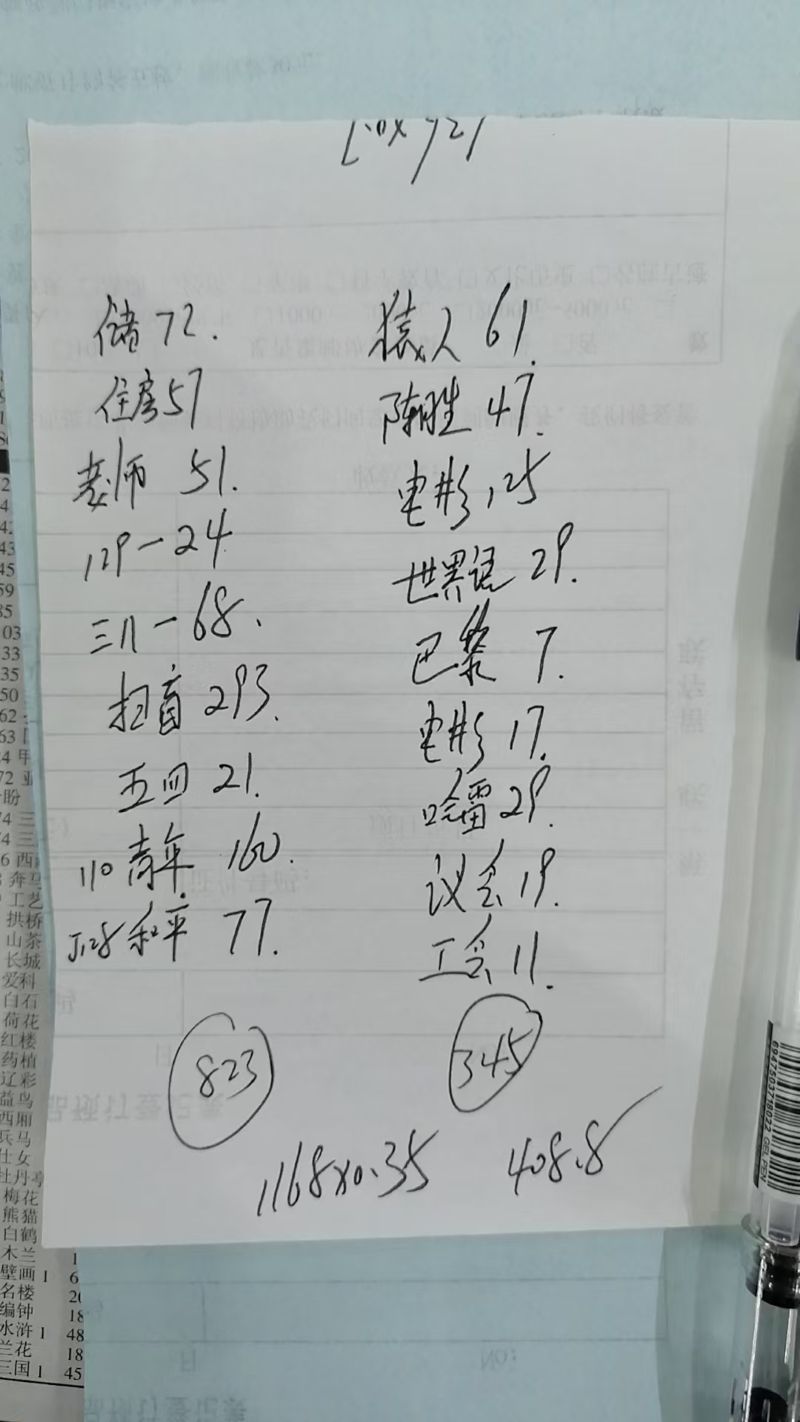 储 72.
住房 57
老师 51.
129-24
三八-68.
扫盲 293.
五四 21.
110 青年 160.
J128 和平 77.
823
猿人 61.
陈胜 47.
电影 125
世界语 29.
巴黎 7.
电影 17.
哈雷 29.
议会 19.
工会 11.
345
1168x0.35
408.8
6947503718022 GEL PEN
西厢
工艺
拱桥
山茶
长城
爱科
白石
荷花
红楼
药植
辽彩
益鸟
西厢
兵马
仕女
牡丹亭
梅花
熊猫
白鹤
木兰 1
壁画 1 6
名楼 20
编钟 18
水浒 1 48
兰花 18
三国 1 45